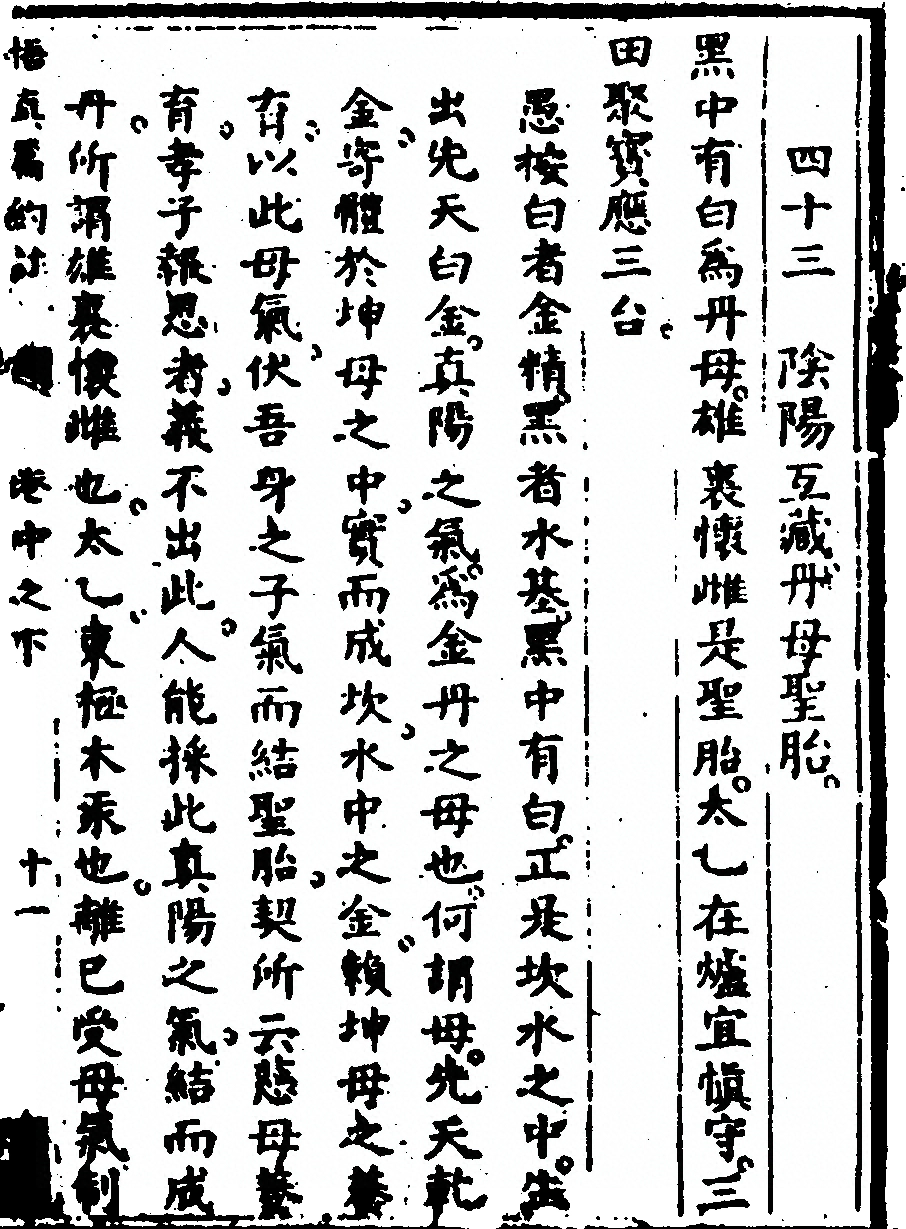 四十三　陰陽互藏丹母聖胎
黑中有白爲丹母雄裹懷雌是聖胎太乙在爐宜愼守三
田聚寶應三台
愚按白者金精黑者水基黑中有白正是坎水之中生
出先天白金真陽之氣爲金丹之母也何謂母先天乾
金寄體於坤母之中實而成坎水中之金賴坤母之養
育以此母氣伏吾身之子氣而結聖胎契所云慈母養
育孝子報恩者義不出此人能採此真陽之氣結而成
丹所謂雄裹懷雌也太乙東極木汞也離已受母氣制
悟真篇約註　卷中之下　十一